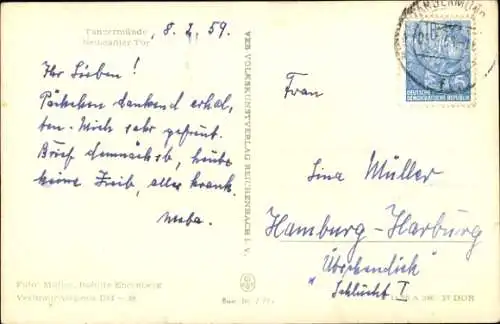 Tangermünde
Neustädter Tor
8. 2. 59.
Ihr Lieben!
Päckchen dankend erhal-
ten. Mich sehr gefreut.
Brief demnächst, heute
keine Zeit, alles krank.
VEB VOLKSKUNSTVERLAG REICHENBACH I. V.
TANGERMÜNDE
DEUTSCHE
DEMOKRATISCHE REPUBLIK
5
Frau
Lina Müller
Hamburg-Harburg
Schlucht I
Foto: Müller,
DOR